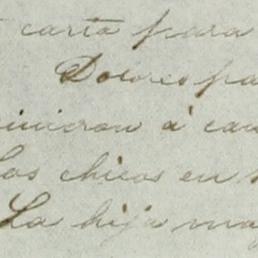 carta para
Dolores pa
inieron á cau
Los chicos en
La hija may